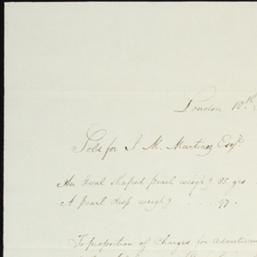 London 10th
Sold for J. M. Martinez Esqr
An Oval shaped pearl weighg 85 grs
A pearl drop weighg .... 97.
To proportion of Charges for Advertisem